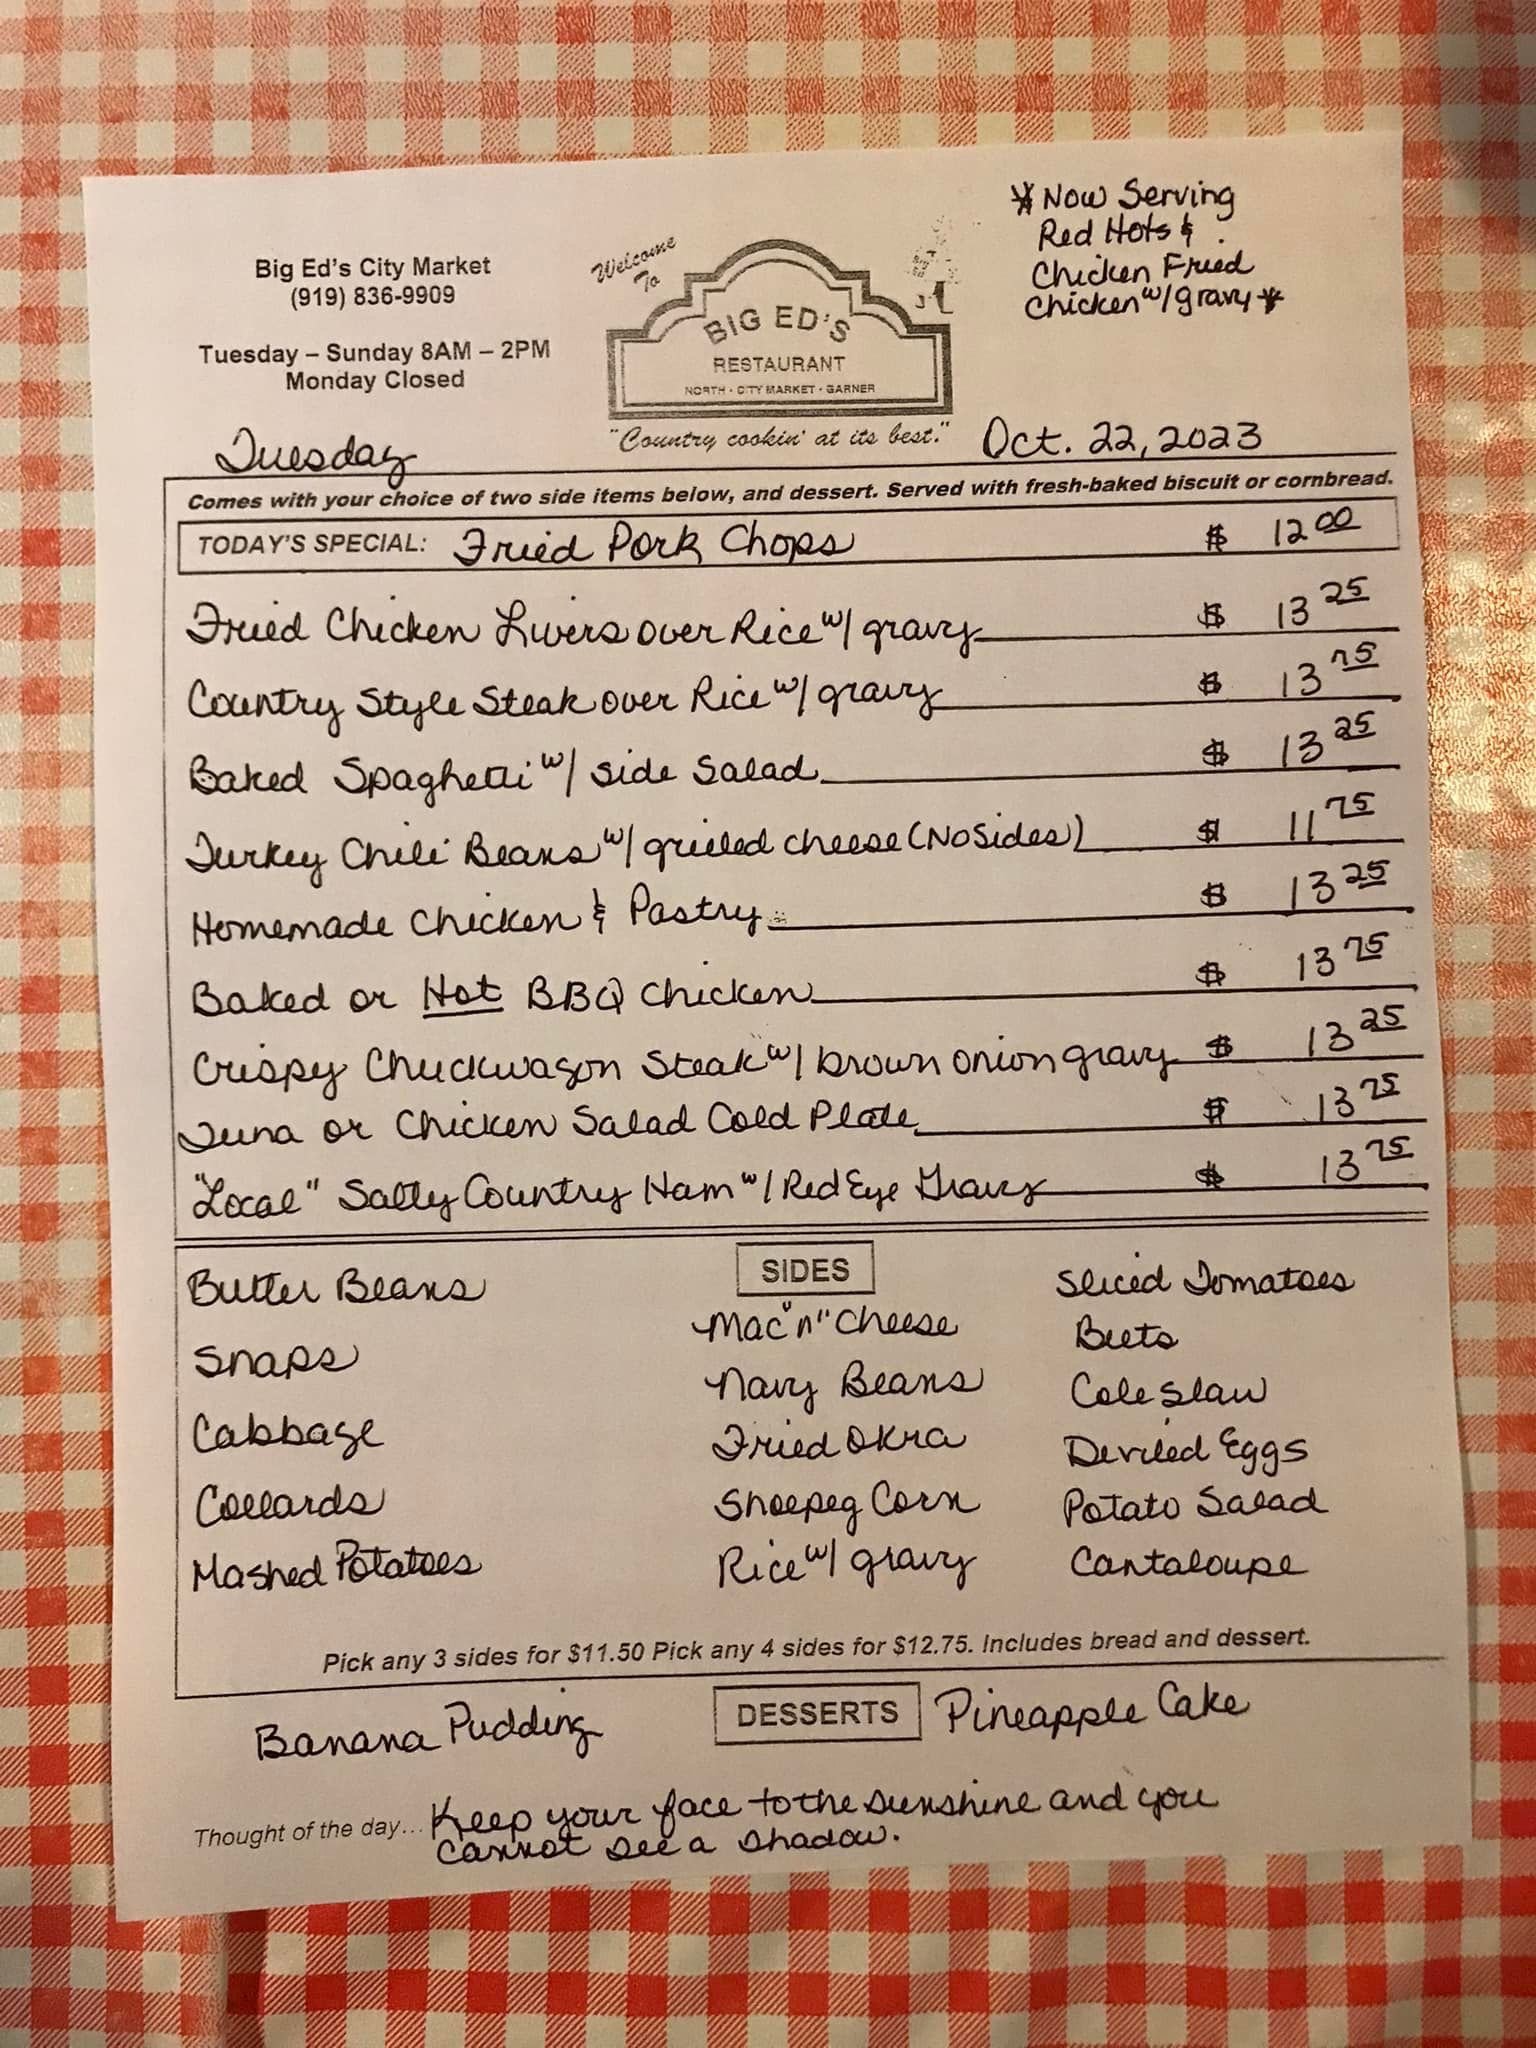 Big Ed's City Market
(919) 836-9909
Tuesday – Sunday 8AM – 2PM
Monday Closed
Welcome
To
BIG ED'S
RESTAURANT
NORTH · CITY MARKET · GARNER
"Country cookin' at its best."
*Now Serving
Red Hots &
Chicken Fried
Chicken w/ gravy*
Tuesday
Oct. 22, 2023
Comes with your choice of two side items below, and dessert. Served with fresh-baked biscuit or cornbread.
TODAY'S SPECIAL: Fried Pork Chops $ 12 00
Fried Chicken Livers over Rice w/ gravy $ 13 25
Country Style Steak over Rice w/ gravy $ 13 75
Baked Spaghetti w/ side salad $ 13 25
Turkey Chili Beans w/ grilled cheese (No Sides) $ 11 75
Homemade Chicken & Pastry $ 13 25
Baked or Hot BBQ Chicken $ 13 75
Crispy Chuckwagon Steak w/ brown onion gravy $ 13 25
Tuna or Chicken Salad Cold Plate $ 13 75
"Local" Salty Country Ham w/ Red Eye Gravy $ 13 75
SIDES
Butter Beans
Snaps
Cabbage
Collards
Mashed Potatoes
Mac "n" Cheese
Navy Beans
Fried Okra
Shoepeg Corn
Rice w/ gravy
Sliced Tomatoes
Beets
Cole Slaw
Deviled Eggs
Potato Salad
Cantaloupe
Pick any 3 sides for $11.50 Pick any 4 sides for $12.75. Includes bread and dessert.
DESSERTS
Banana Pudding
Pineapple Cake
Thought of the day... Keep your face to the sunshine and you
cannot see a shadow.